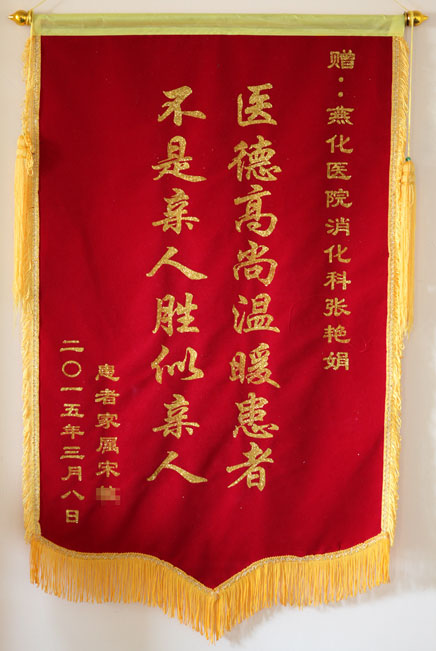 赠：燕化医院消化科张艳娟
医德高尚温暖患者
不是亲人胜似亲人
患者家属宋
二〇一五年三月八日